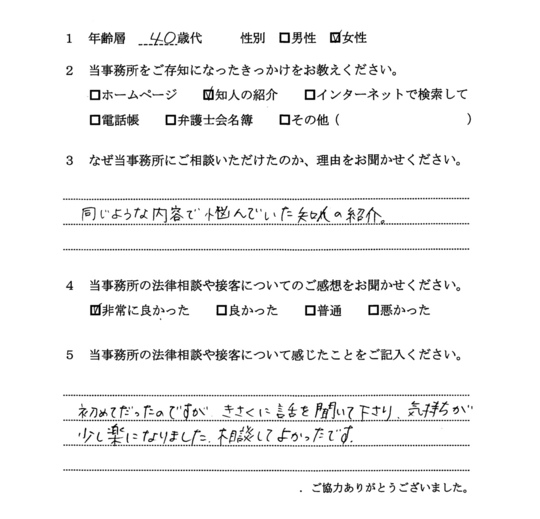 1 年齢層 40歳代 性別 □男性 ☑女性
2 当事務所をご存知になったきっかけをお教えください。
□ホームページ ☑知人の紹介 □インターネットで検索して
□電話帳 □弁護士会名簿 □その他 ( )
3 なぜ当事務所にご相談いただけたのか、理由をお聞かせください。
同じような内容で悩んでいた知人の紹介。
4 当事務所の法律相談や接客についてのご感想をお聞かせください。
☑非常に良かった □良かった □普通 □悪かった
5 当事務所の法律相談や接客について感じたことをご記入ください。
初めてだったのですが、きさくに話を聞いて下さり、気持ちが
少し楽になりました。相談してよかったです。
ご協力ありがとうございました。